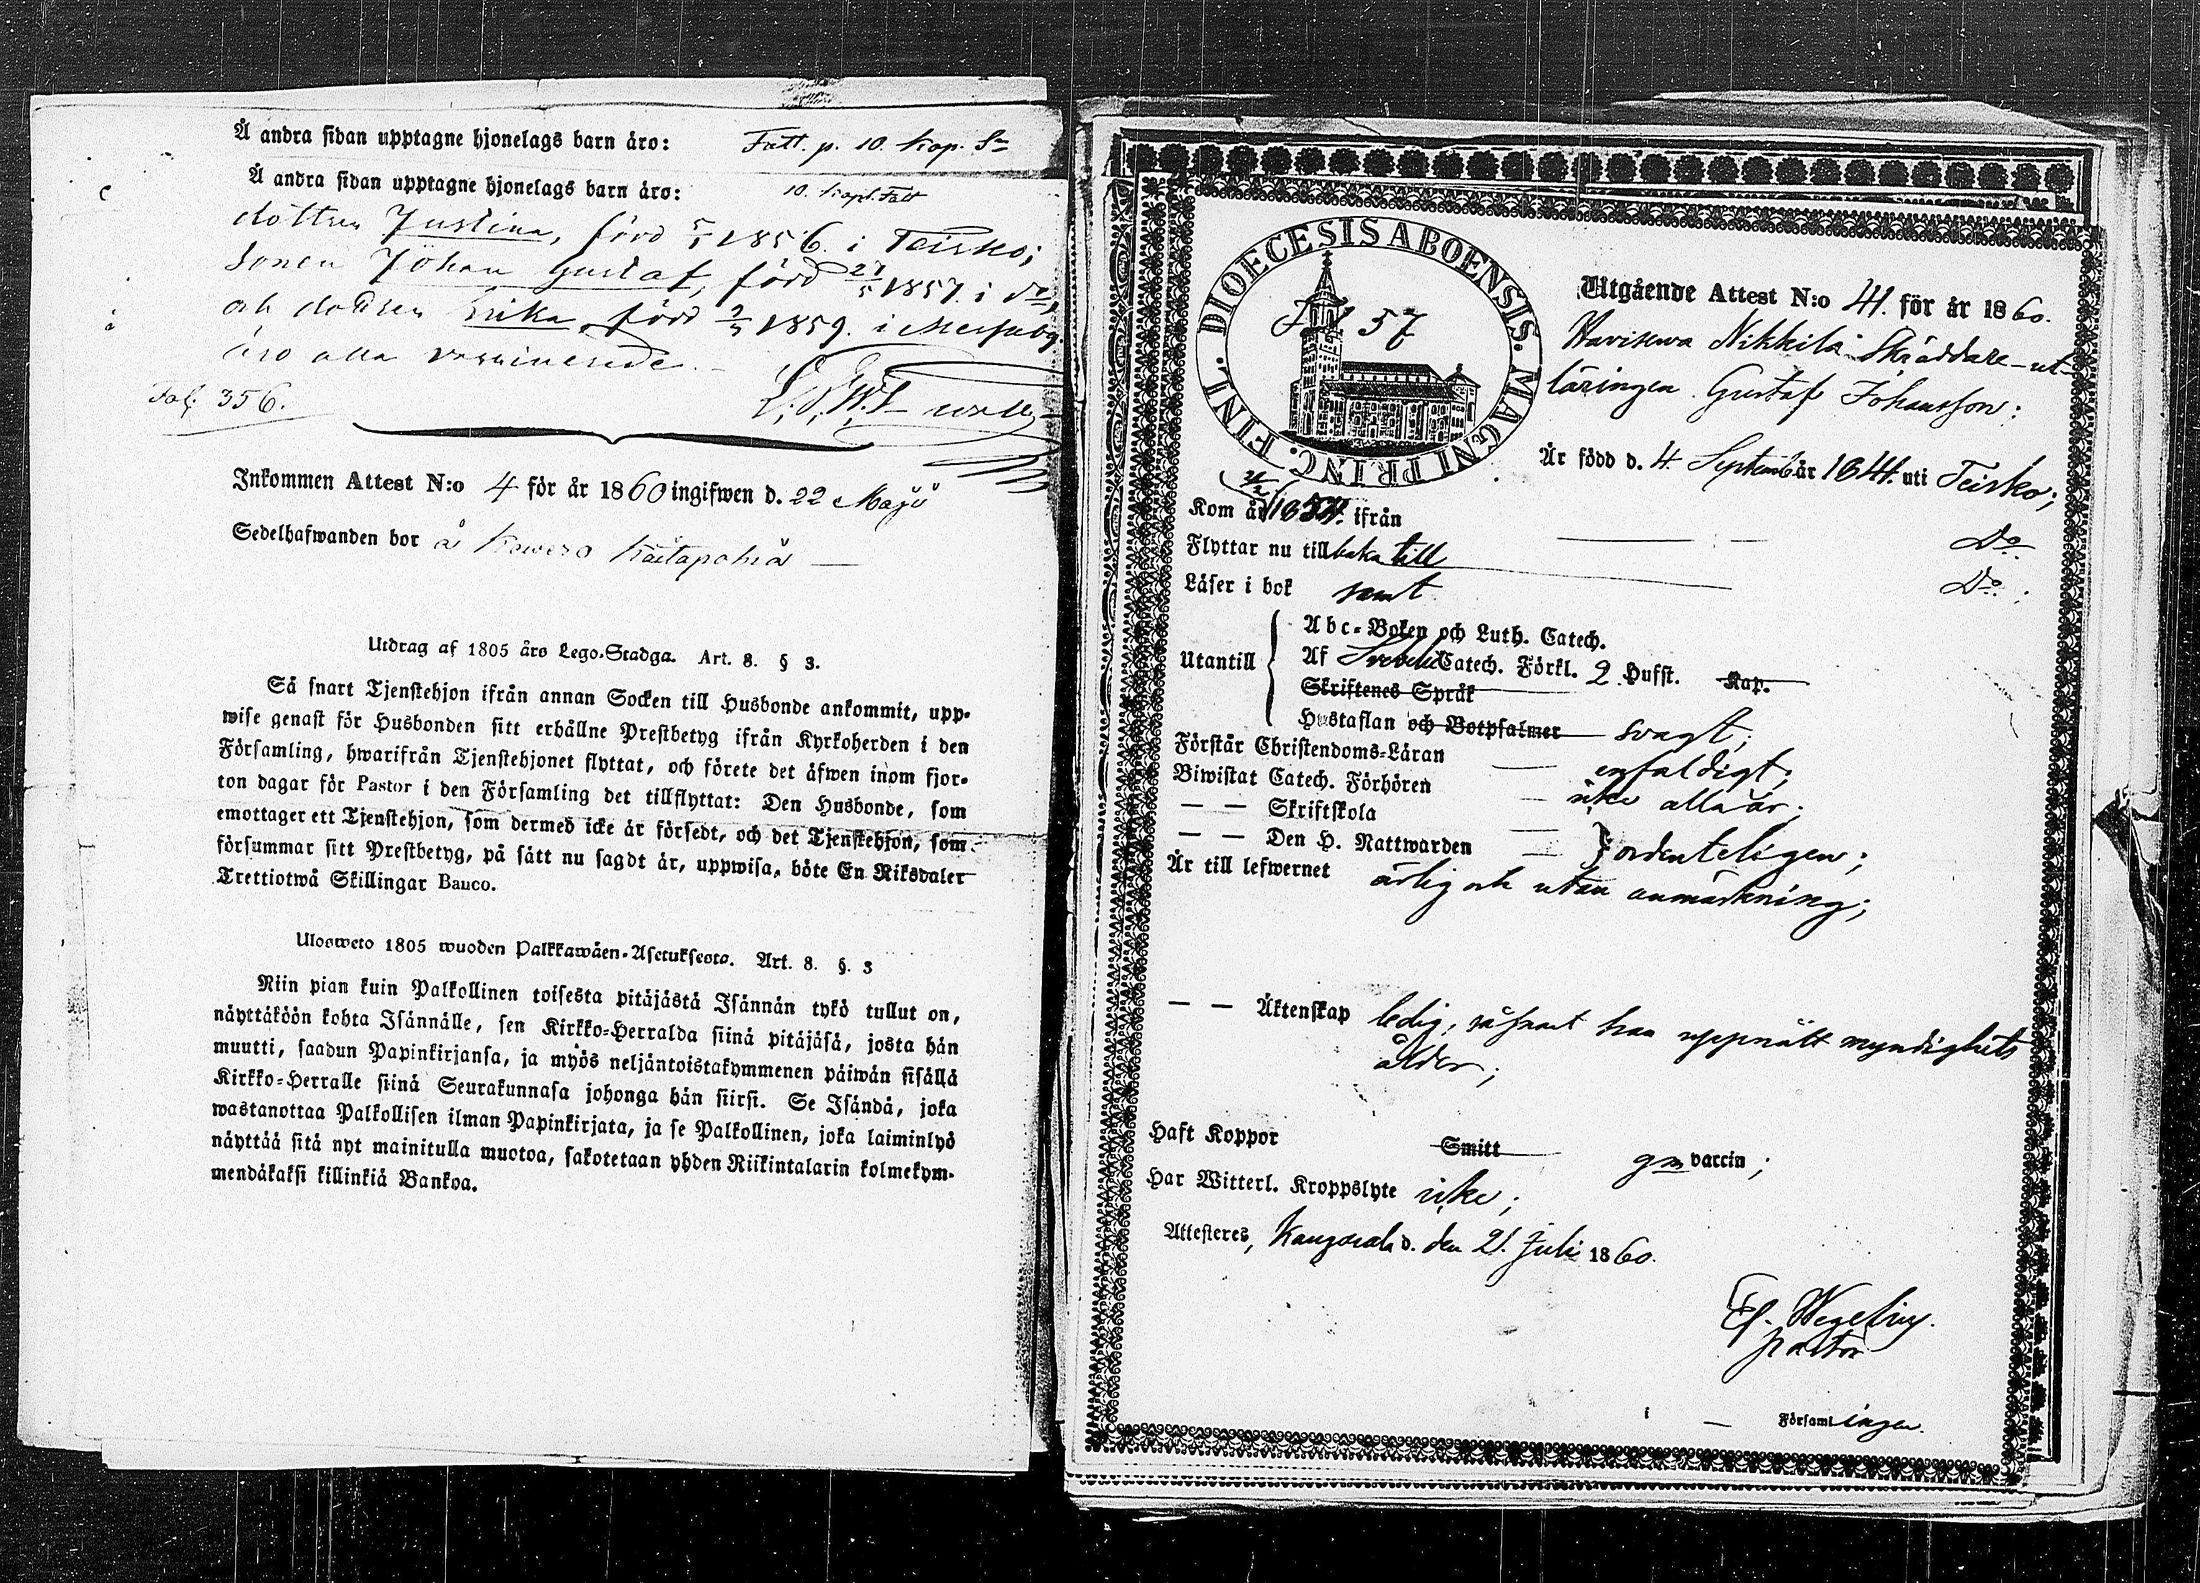 Å andra sidan upptagne hjonelags barn äro: Fatt. p. 10. kop. Sr
Å andra sidan upptagne hjonelags barn äro: 10. kop. Fatt
dottren Justina, född 5/1 1856. i Teisko;
Sonen Johan Gustaf, född 27/5 1857. i do,
och dottren Erika, född 1859. i
äro alla vaccinerade.
Fol. 356.
Inkommen Attest N:o 4 för år 1860 ingifwen d. 22 Maji
Sedelhafwanden bor å Kowero
Utdrag af 1805 års Lego-Stadga. Art. 8. § 3.
Så snart Tjenstehjon ifrån annan Socken till Husbonde ankommit, upp-
wise genast för Husbonden sitt erhållne Prestbetyg ifrån Kyrkoherden i den
Församling, hwarifrån Tjenstehjonet flyttat, och förete det äfwen inom fjor-
ton dagar för Pastor i den Församling det tillflyttat: Den Husbonde, som
emottager ett Tjenstehjon, som dermed icke är försedt, och det Tjenstehjon, som
försummar sitt Prestbetyg, på sätt nu sagdt är, uppwisa, böte En Riksdaler
Trettiotwå Skillingar Banco.
Ulosweto 1805 wuoden Palkkawäen-Asetuksesta. Art. 8. §. 3
Niin pian kuin Palkollinen toisesta pitäjästä Isännän tykö tullut on,
näyttäköön kohta Isännälle, sen Kirkko-Herralda siinä pitäjäsä, josta hän
muutti, saadun Papinkirjansa, ja myös neljäntoistakymmenen päiwän sisällä
Kirkko-Herralle siinä Seurakunnasa johonga hän siirsi. Se Isändä, joka
wastanottaa Palkollisen ilman Papinkirjata, ja se Palkollinen, joka laiminlyö
näyttää sitä nyt mainitulla muotoa, sakotetaan yhden Riikintalarin kolmekym-
mendäkaksi killinkiä Bankoa.
DIOECESIS ABOENSIS. MAGNI PRINC. FINL.
57
Utgående Attest N:o 41. för år 1860.
Havisewa Nikkilä Skräddare-ut-
läringen Gustaf Johansson:
Är född d. 4. September år 1841. uti Teisko;
Kom år 1854. ifrån Do.
Flyttar nu tillbaka till Do.;
Läser i bok samt
Utantill
Abc-Boken och Luth. Catech.
Af Svebelii Catech. Förkl. 2 Hufst. Kap.
Skriftenes Språk
Hustaflan och Botpsalmer svagt;
Förstår Christendoms-Läran enfaldigt;
Biwistat Catech. Förhören icke alla år;
— — Skriftskola
— — Den H. Nattwarden ordenteligen;
Är till lefwernet ärlig och utan anmärkning;
— — Äktenskap ledig, så snart han uppnått myndighets
ålder;
Haft Koppor Smitt gm vaccin;
Har Witterl. Kroppslyte icke;
Attesteres, Kangasala d. den 21. Juli 1860.
Ef. Wegelius.
pastor
i — Församlingen.